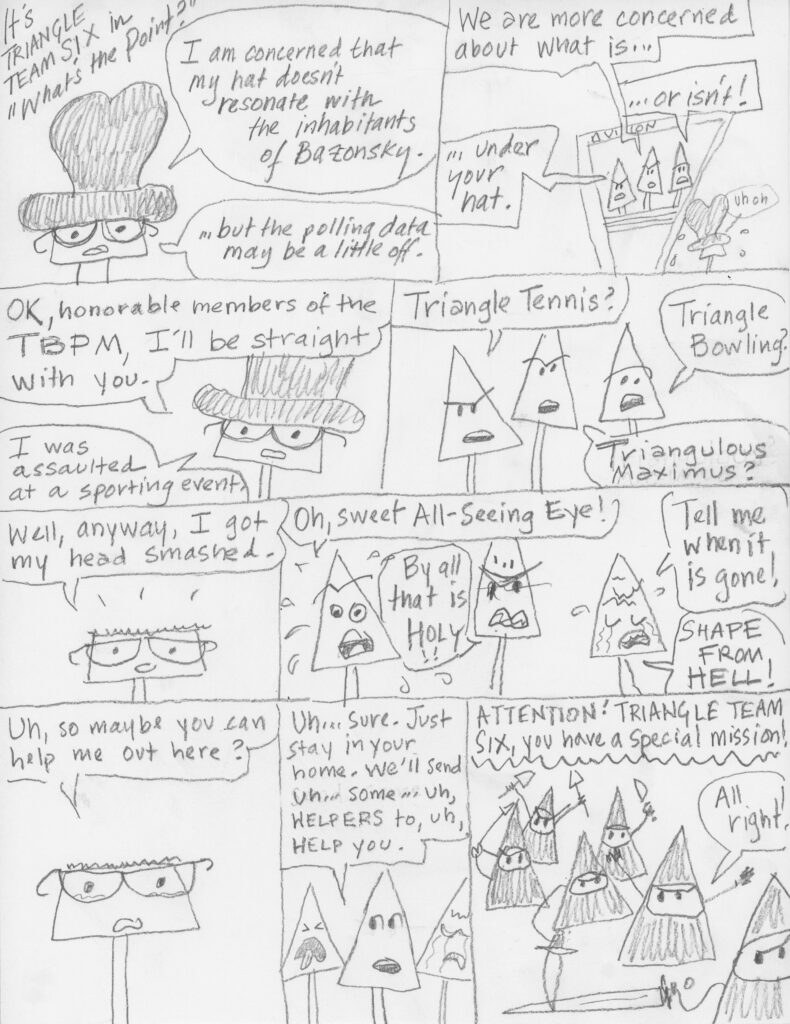 It's
TRIANGLE
TEAM SIX in
"What's the Point?"
I am concerned that
my hat doesn't
resonate with
the inhabitants
of Bazonsky.
... but the polling data
may be a little off.
We are more concerned
about what is...
... or isn't!
... under
your
hat.
uh oh
OK, honorable members of the
TBPM, I'll be straight
with you.
I was
assaulted
at a sporting event.
Triangle Tennis?
Triangle
Bowling?
Triangulous
Maximus?
Well, anyway, I got
my head smashed.
Oh, sweet All-Seeing Eye!
By all
that is
HOLY
!!
Tell me
when it
is gone!
SHAPE
FROM
HELL!
Uh, so maybe you can
help me out here?
Uh... Sure. Just
stay in your
home. We'll send
uh... some... uh,
HELPERS to, uh,
HELP YOU.
ATTENTION! TRIANGLE TEAM
SIX, you have a special mission!
All
right!